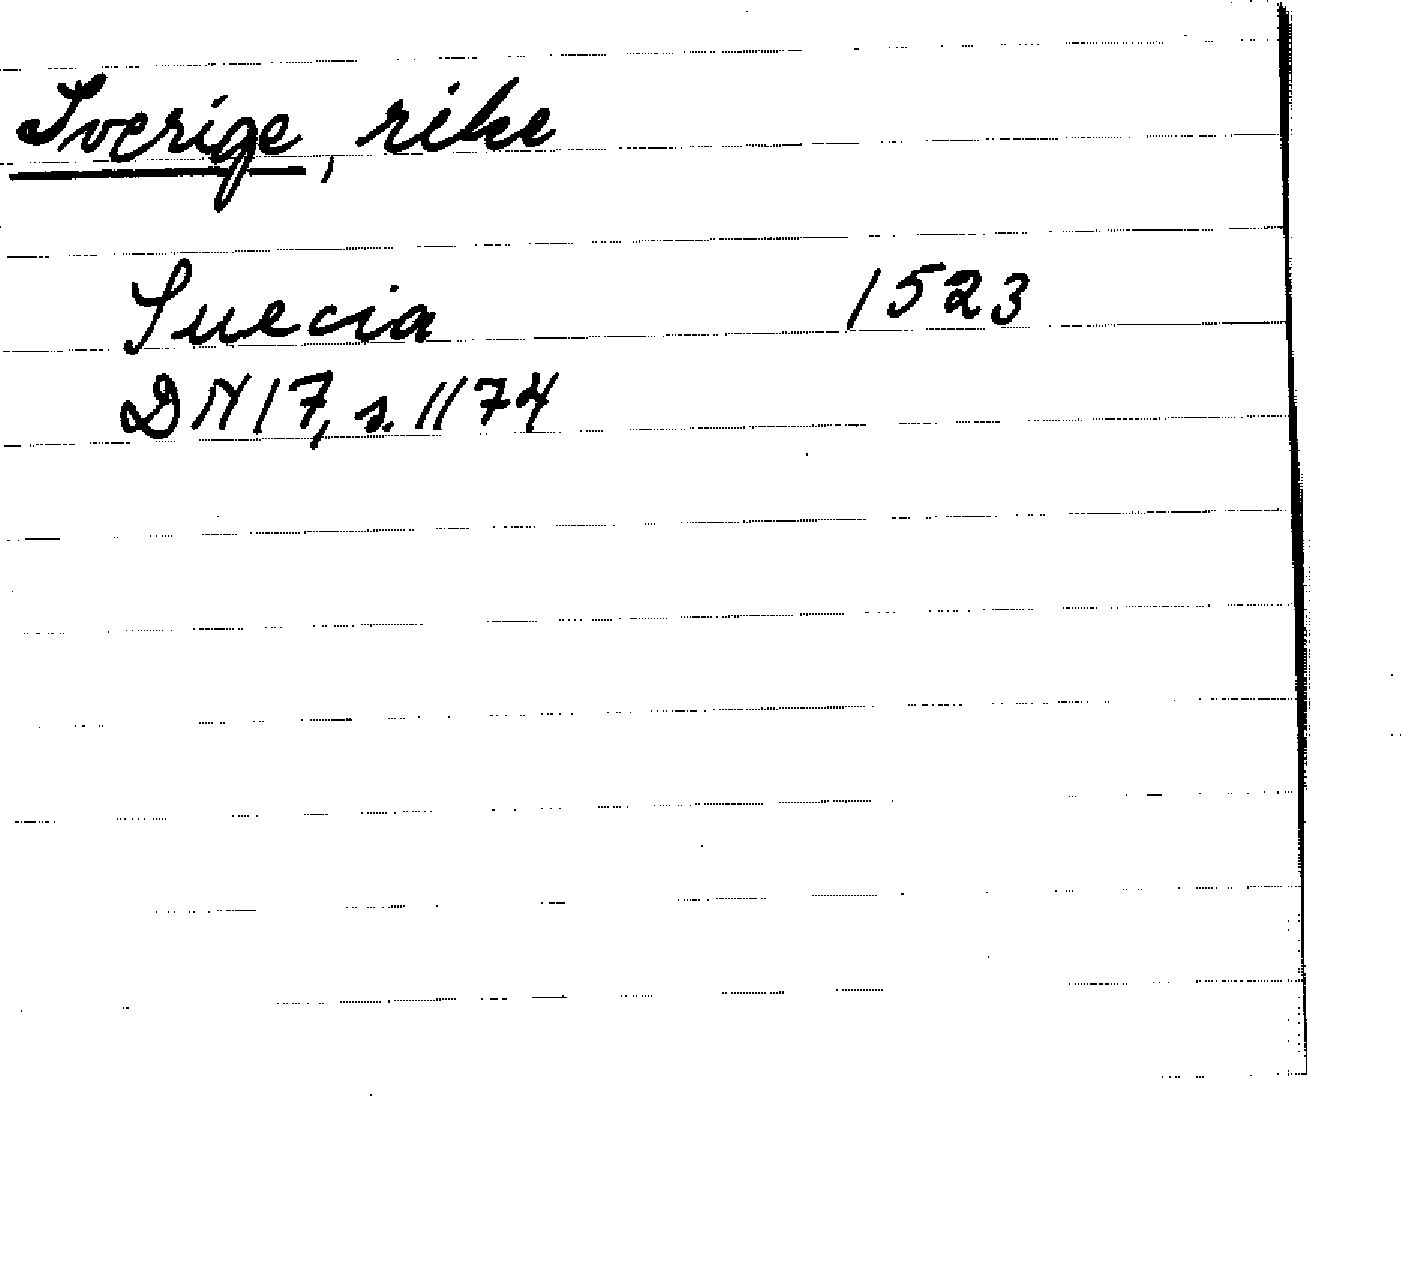 Sverige, rike
Suecia 1523
DN17, s. 1174